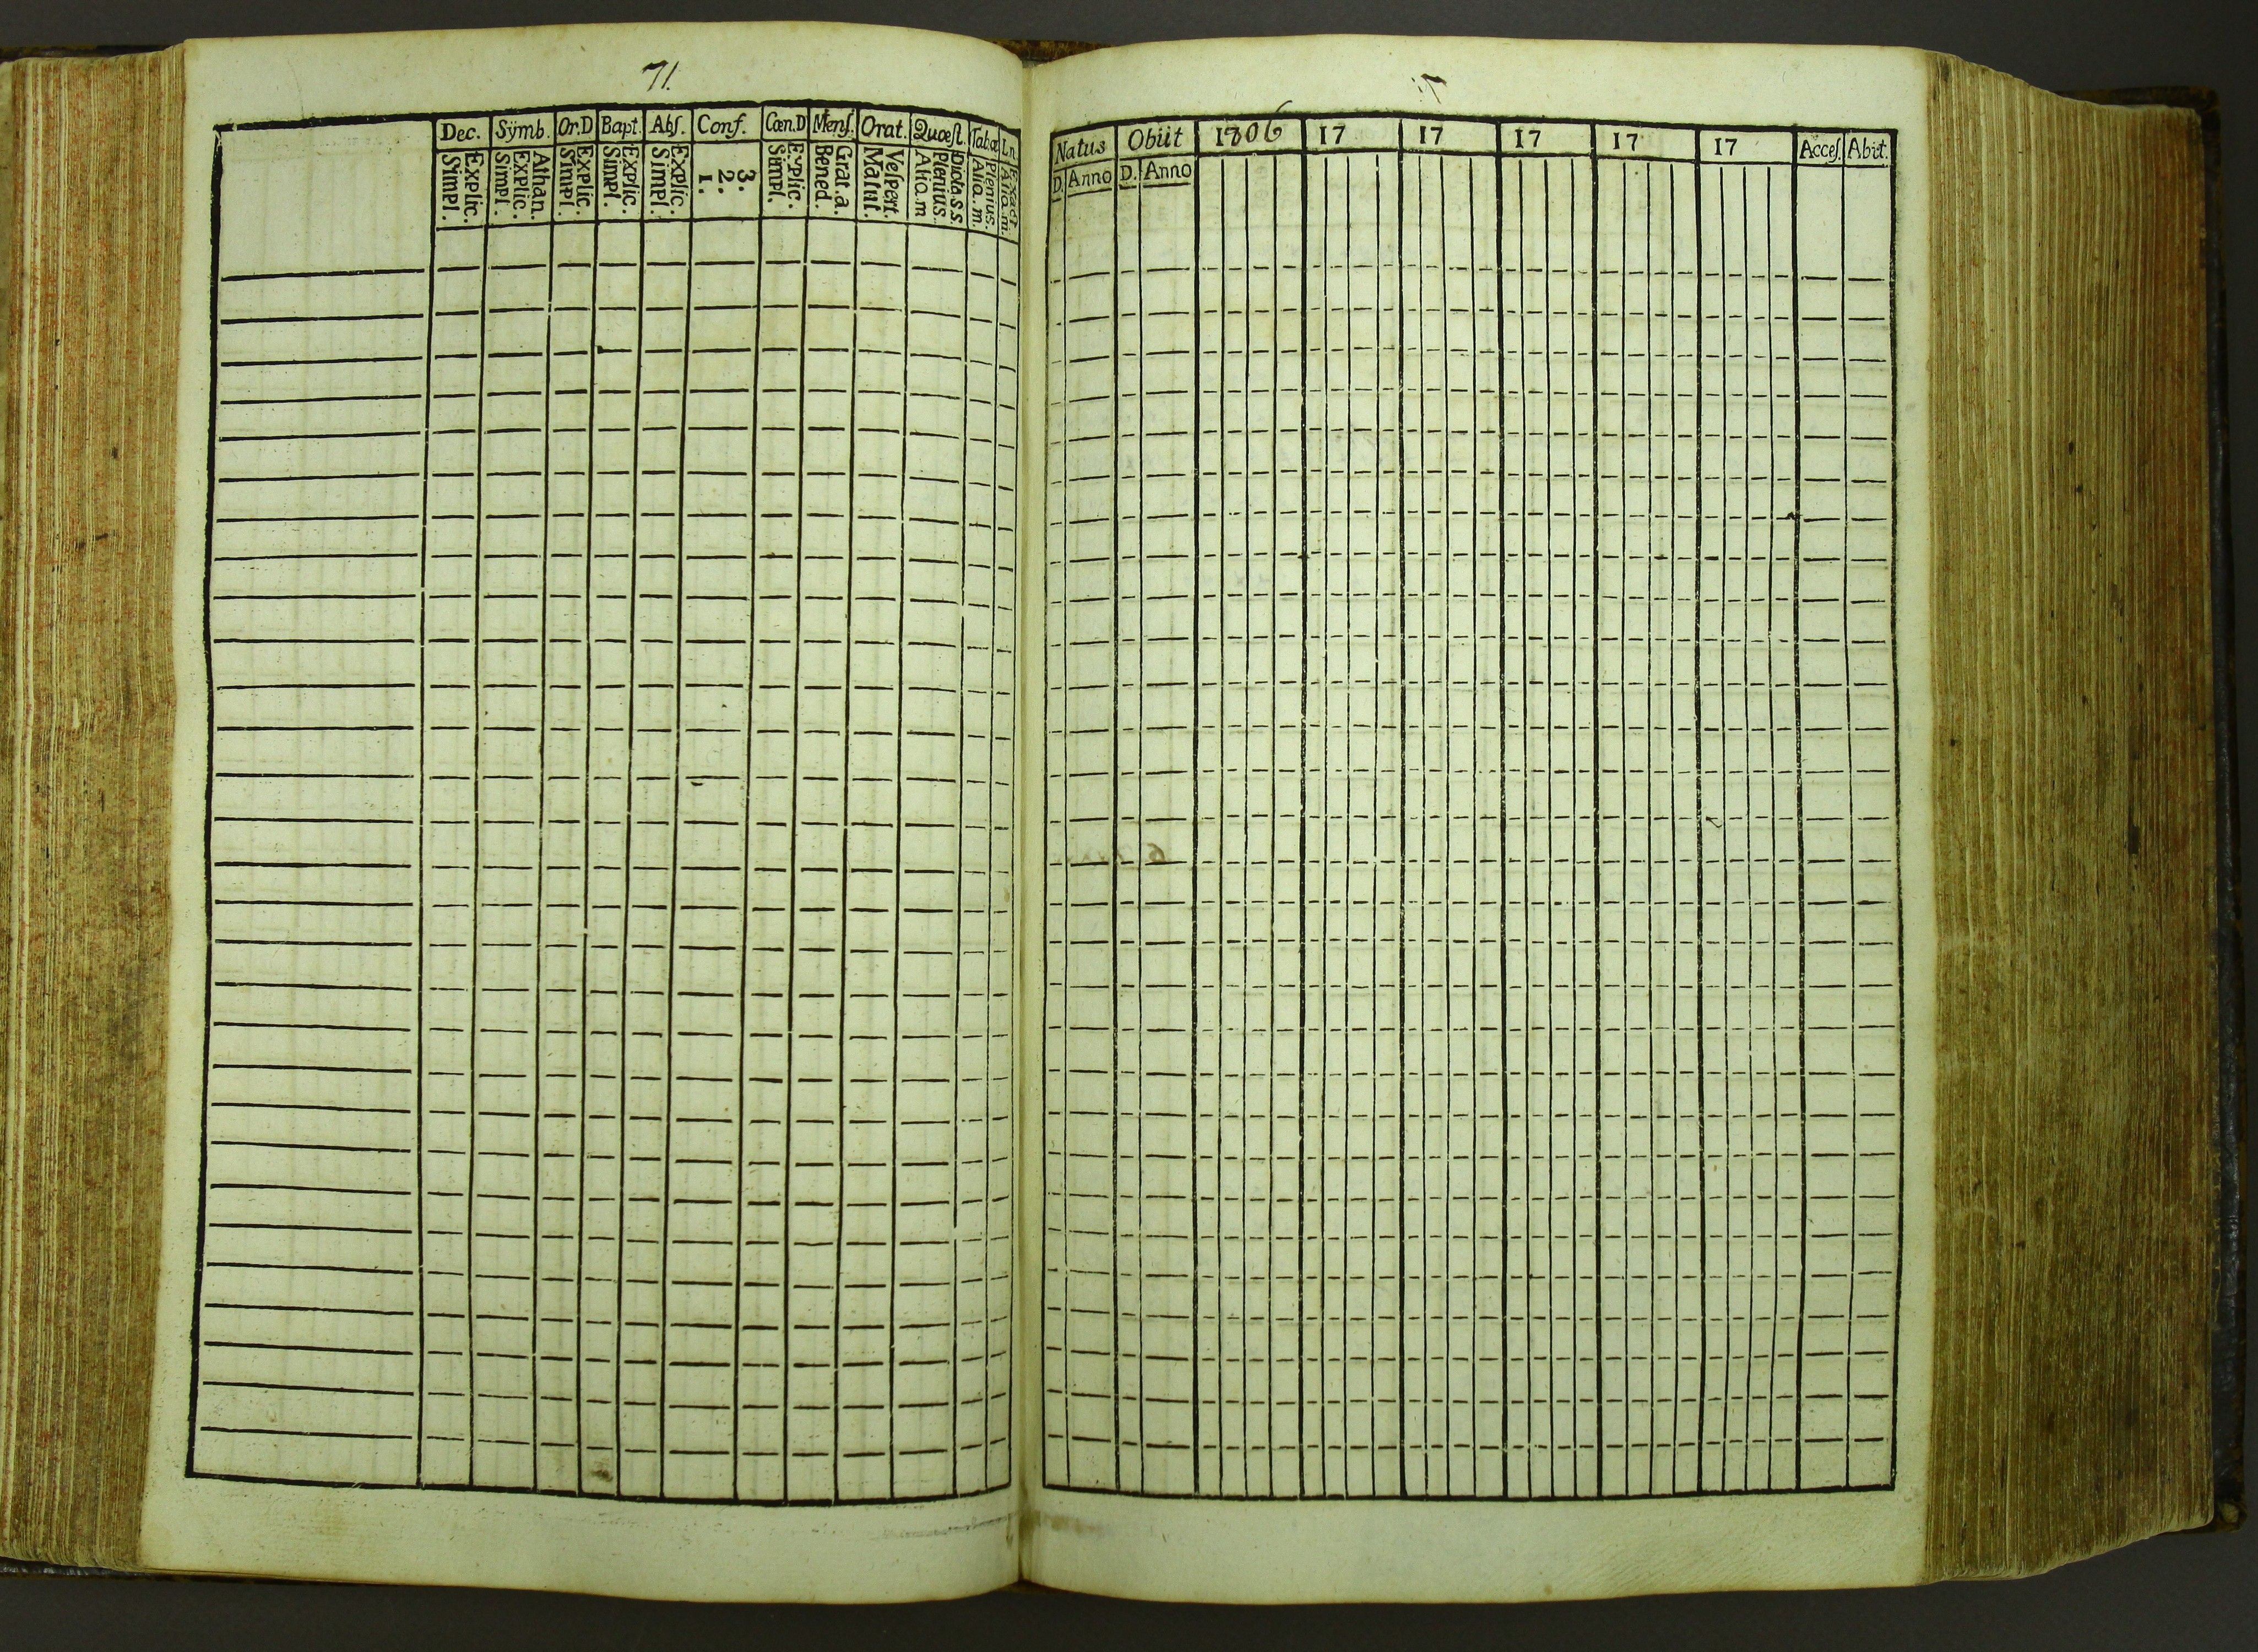 71.
Dec. Sÿmb. Or.D Bapt. Abs. Conf. Cœn.D Mens. Orat. Quæst. Tabæ Ln.
Explic. Simpl. Athan. Explic. Simpl. Explic. Simpl. Explic. Simpl. Explic. Simpl. 3. 2. 1. Explic. Simpl. Grat.a. Bened. Vespert. Matut. Dicta.s.s. Plenius. Aliq.m Plenius. Aliq.m. Exact Aliq.m.
Natus Obiit 1806 17 17 17 17 17 Acces. Abit.
D. Anno D. Anno